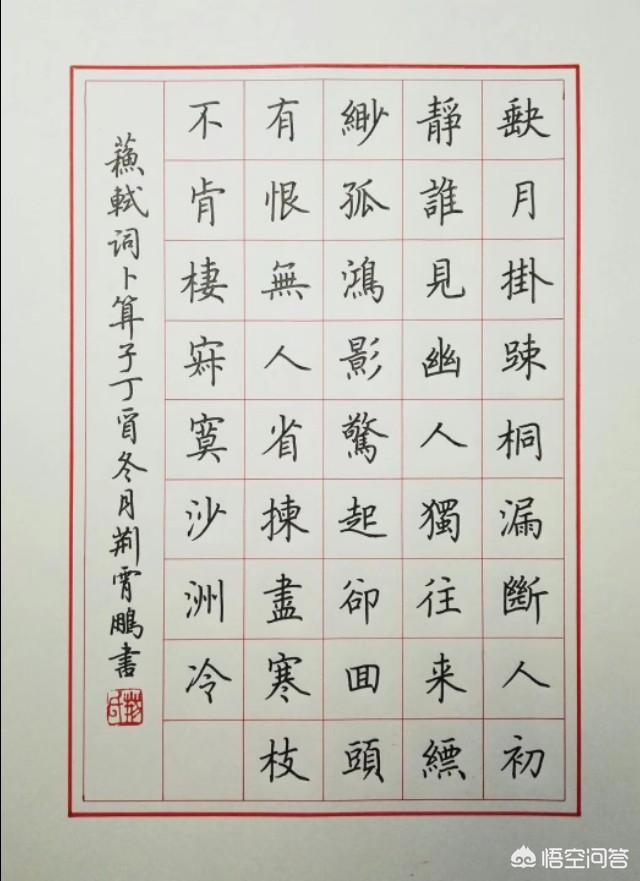 缺月掛踈桐漏斷人初
靜誰見幽人獨往来縹
緲孤鴻影驚起卻回頭
有恨無人省揀盡寒枝
不肯棲寂寞沙洲冷
蘓軾词卜算子丁酉冬月荆霄鵬書
悟空问答